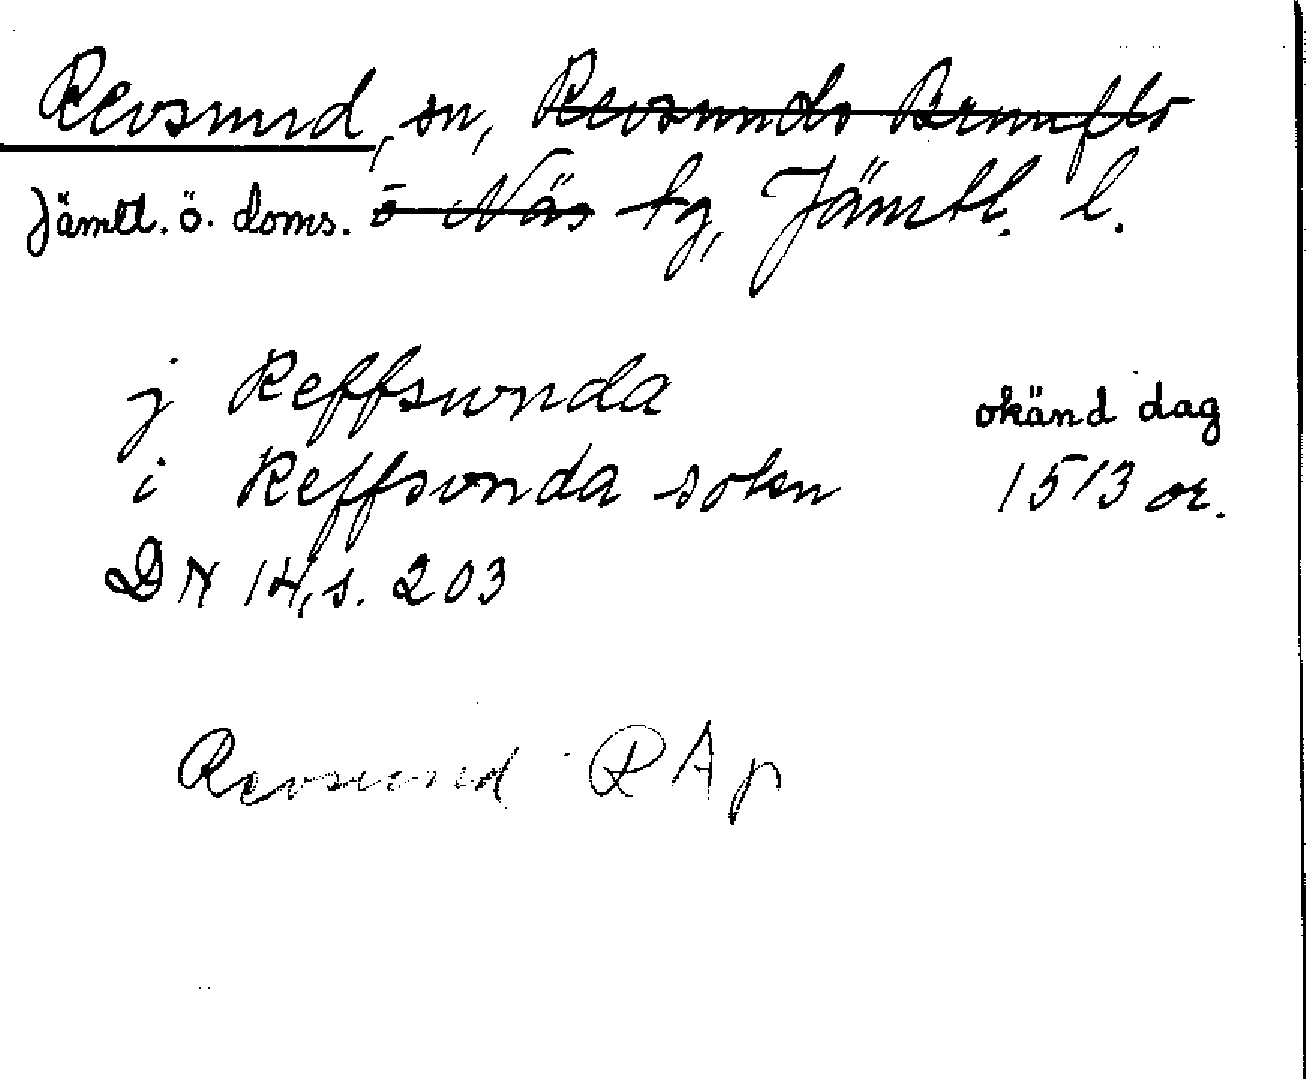 Revsund, sn, Revsunds Brunflo
Jämtl. ö. doms. o Näs tg, Jämtl. l.
j Reffsunda okänd dag
i Reffsvnda sokn 1513 or.
DN 14, s. 203
Revsund RAp